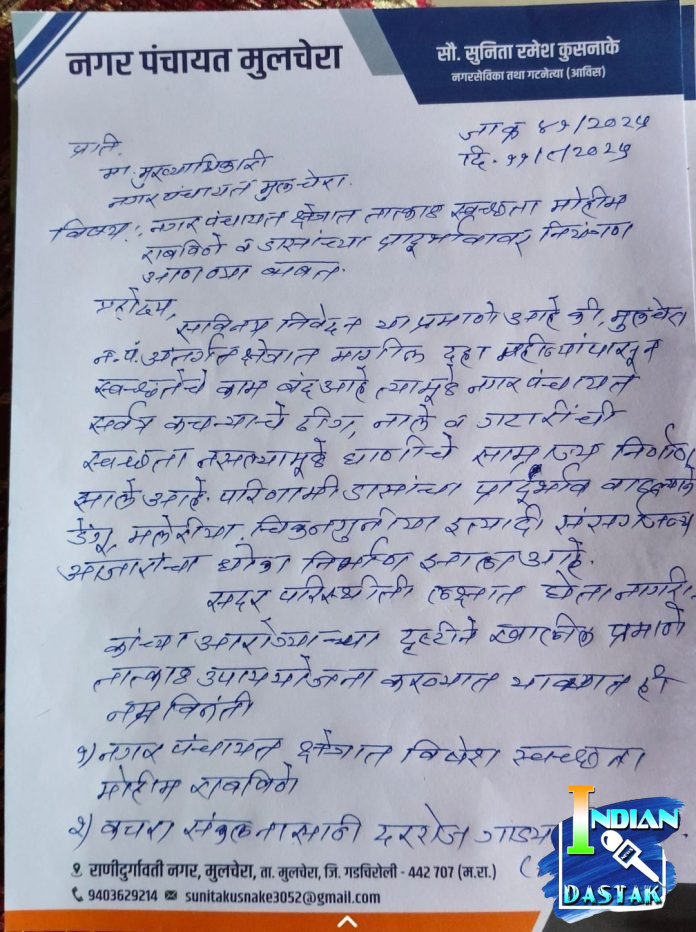 नगर पंचायत मुलचेरा
सौ. सुनिता रमेश कुसनाके
नगरसेविका तथा गटनेत्या (आविस)
जा क्र ४१/२०२५
दि. ११/९/२०२५
प्रति,
मा. मुख्याधिकारी
नगर पंचायत मुलचेरा.
विषय: नगर पंचायत क्षेत्रात तात्काळ स्वच्छता मोहीम
राबविणे व डासांच्या प्रादूर्भावावर नियंत्रण
आणण्या बाबत.
महोदय,
सविनय निवेदन या प्रमाणे आहे की, मुलचेरा
न.पं. अंतर्गत क्षेत्रात मागील दहा महीन्यांपासून
स्वच्छतेचे काम बंद आहे त्यामूळे नगर पंचायत
सर्वत्र कचऱ्याचे ढीग, नाले व गटारींची
स्वच्छता नसल्यामूळे घाणीचे साम्राज्य निर्माण
झाले आहे. परिणामी डासांचा प्रादूर्भाव वाढल्याने
डेंगू, मलेरीया, चिकनगुनीया इत्यादी संसर्गजन्य
आजारांचा धोका निर्माण झाला आहे.
सदर परिस्थीती लक्षात घेता नागरि-
कांच्या आरोग्याच्या दृष्टीने खालील प्रमाणे
तात्काळ उपाययोजना करण्यात याव्यात ही
नम्र विनंती
१) नगर पंचायत क्षेत्रात विशेश स्वच्छता
मोहीम राबविणे
२) कचरा संकलनासाठी दररोज गाड्या
राणीदुर्गावती नगर, मुलचेरा, ता. मुलचेरा, जि. गडचिरोली - 442 707 (म.रा.)
9403629214 sunitakusnake3052@gmail.com
INDIAN
DASTAK